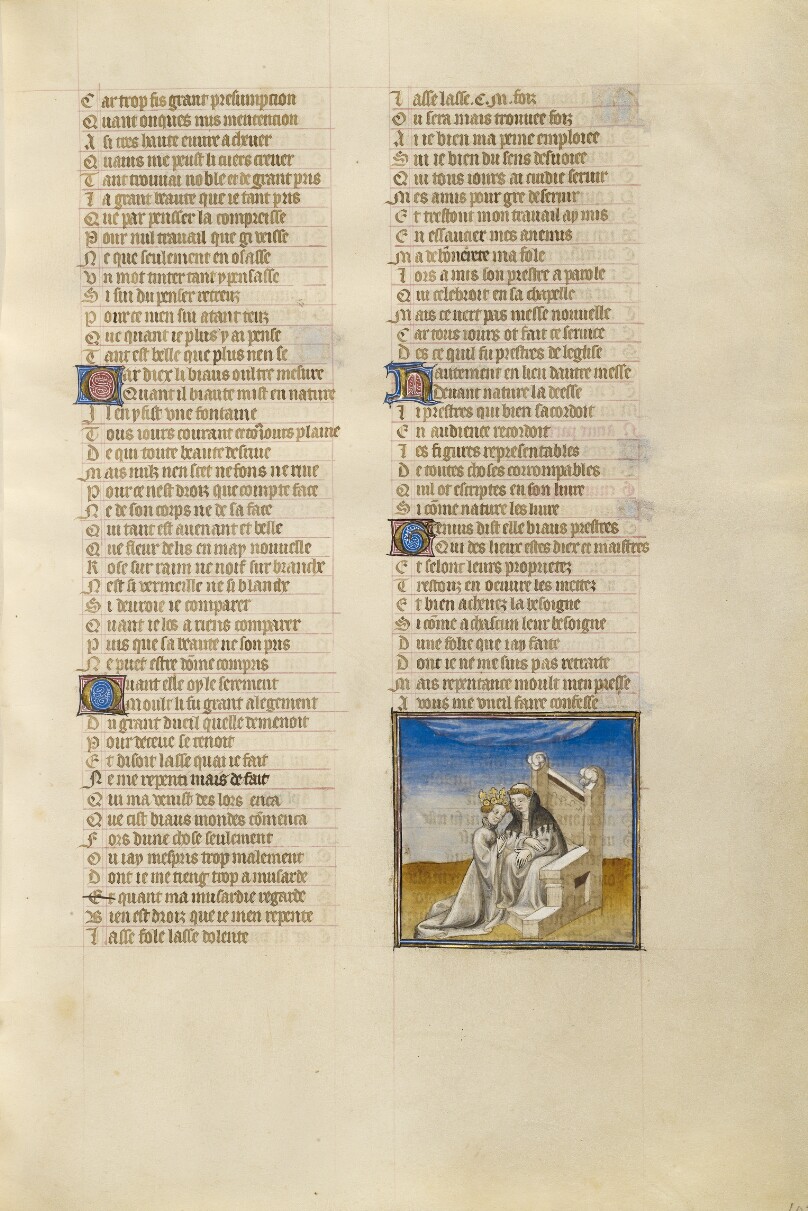 Car trop fis grant presumpcion
Quant onques mis mentencion
A si tres haute euure acheuer
Quains me peust li cuers creuer
Tant trouuai noble et de grant pris
La grant beaute que ie tant pris
Que par pensser la compreisse
Pour nul trauail que gi veisse
Ne que seulement en osasse
Vn mot tinter tant y pensasse
Si sui du penser recreuz
Pour ce men sui atant teuz
Que quant ie plus y ai pense
Tant est belle que plus nen se
Car diex li biaus oultre mesure
Quant il biaute mist en nature
Il en y fist vne fontaine
Tous iours courant et toliours plaine
De qui toute beaute desriue
Mais nulz nen scet ne fons ne riue
Pour ce nest droiz que compte face
Ne de son corps ne de sa face
Qui tant est auenant et belle
Que fleur de lis en may nouuelle
Rose sur raim ne noif sur branche
Nest si vermeille ne si blanche
Si deuroie ie comparer
Quant ie los a riens comparer
Puis que sa beaute ne son pris
Ne puet estre dome compris
Quant elle oy le serement
Moult li fu grant alegement
Du grant dueil quelle demenoit
Pour deceue se tenoit
Et disoit lasse quai ie fait
Ne me repenti mais de fait
Qui ma venist des lors enca
Que cist biaus mondes comenca
Fors dune chose seulement
Ou iay mespris trop malement
Dont ie me tieng trop a musarde
Et quant ma musardie regarde
Bien est droiz que ie men repente
Lasse fole lasse dolente
Lasse lasse .C.M. foiz
Ou sera mais trouuee foiz
Ai ie bien ma peine emploiee
Sui ie bien du sens desuoiee
Qui tous iours ai cuidie seruir
Mes amis pour gre deseruir
Et trestout mon trauail ay mis
En essaucier mes anemis
Ma debonerete ma fole
Lors a mis son prestre a parole
Qui celebroit en sa chapelle
Mais ce nert pas messe nouuelle
Car tous iours ot fait ce seruice
Des ce quil fu prestres de leglise
Hautement en lieu dautre messe
Deuant nature la deesse
Li prestres qui bien sacordoit
En audience recordoit
Les figures representables
De toutes choses corrompables
Quil ot escriptes en son liure
Si come nature les liure
Genius dist elle biaus prestres
Qui des lieux estes diex et maistres
Et selonc leurs proprietez
Trestouz en oeuure les mettez
Et bien acheuez la besoigne
Si come a chascun leur besoigne
Dune folie que iay faite
Dont ie ne me suis pas retraite
Mais repentance moult men presse
A vous me vueil faire confesse